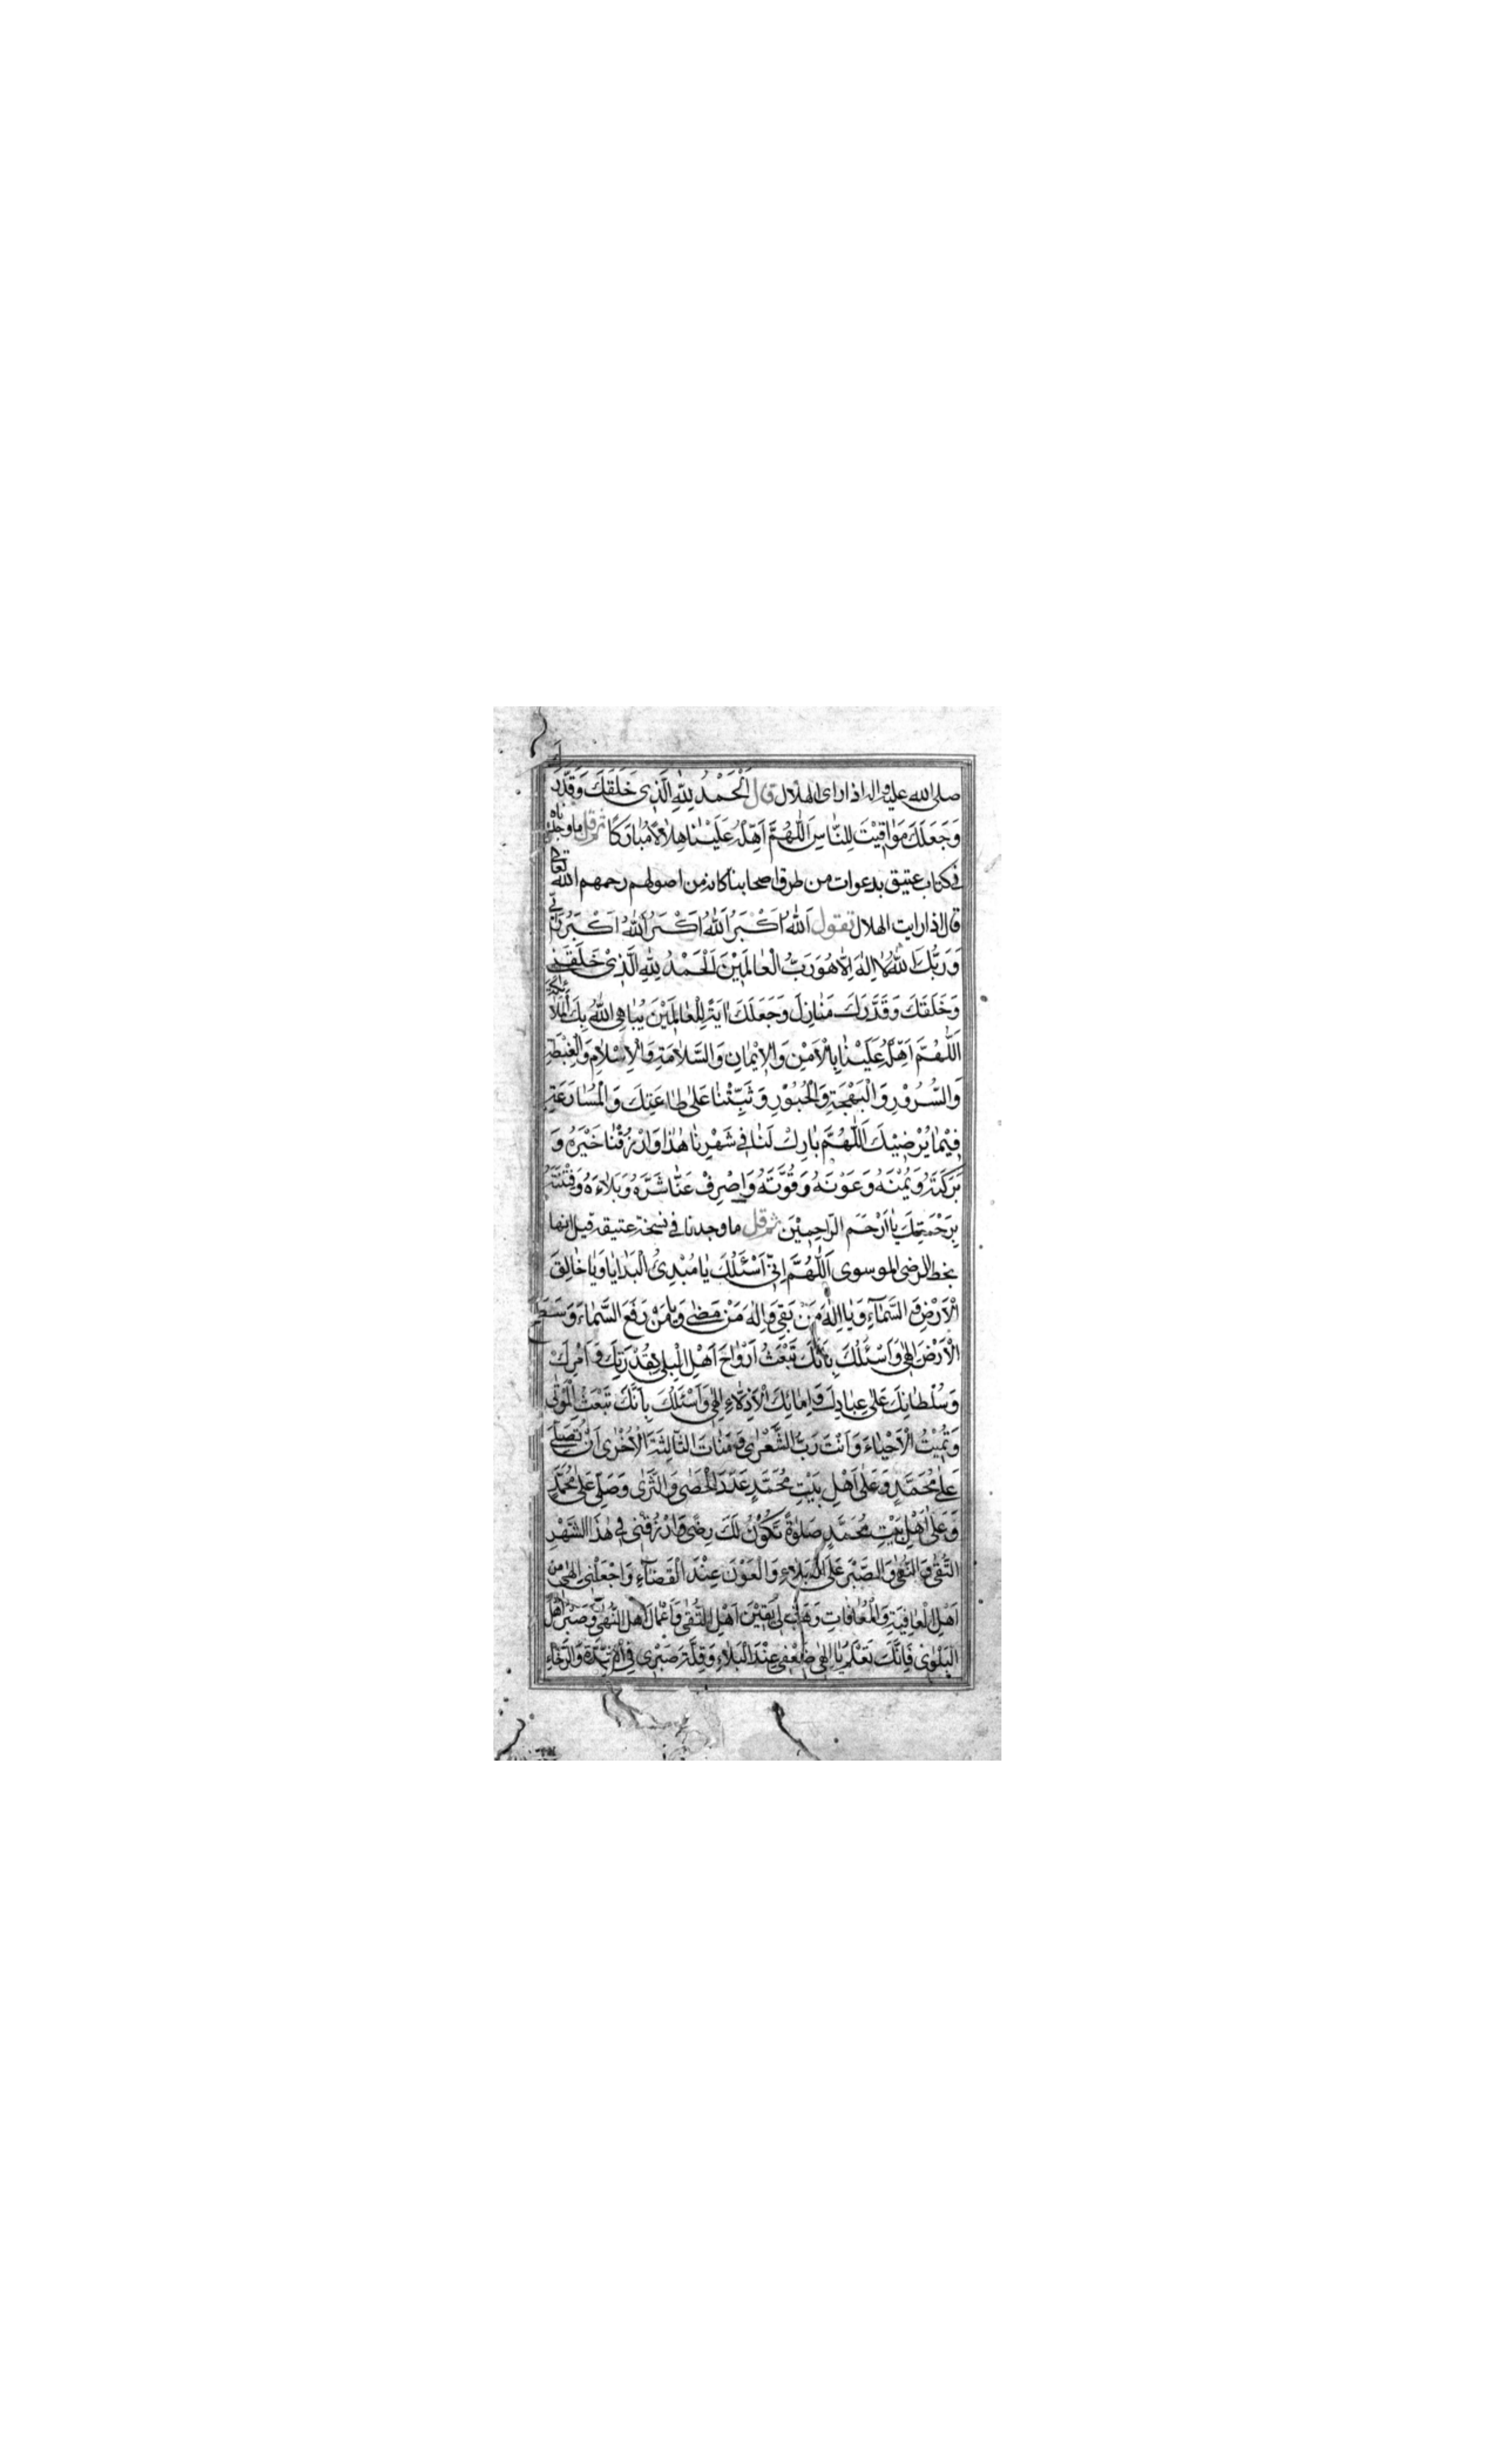 صلى الله عليه واله اذا راى الهلال قال اَلْحَمْدُ لِلّٰهِ الَّذِىْ خَلَقَكَ وَقَدَّرَكَ
وَجَعَلَكَ مَوَاقِيْتَ لِلنَّاسِ اَللّٰهُمَّ اَهِلَّهُ عَلَيْنَا هِلَالًا مُبَارَكًا ثم قل ما وجدناه
فى كتاب عتيق بدعوات من طرق اصحابنا كانه من اصولهم رحمهم الله تعالى
قال اذا رايت الهلال تقول اَللّٰهُ اَكْبَرُ اَللّٰهُ اَكْبَرُ اَللّٰهُ اَكْبَرُ رَبِّىْ
وَرَبُّكَ اللّٰهُ لَا اِلٰهَ اِلَّا هُوَ رَبُّ الْعَالَمِيْنَ اَلْحَمْدُ لِلّٰهِ الَّذِىْ خَلَقَنِىْ
وَخَلَقَكَ وَقَدَّرَكَ مَنَازِلَ وَجَعَلَكَ اٰيَةً لِلْعَالَمِيْنَ يُبَاهِى اللّٰهُ بِكَ الْمَلَائِكَةَ
اَللّٰهُمَّ اَهِلَّهُ عَلَيْنَا بِالْاَمْنِ وَالْاِيْمَانِ وَالسَّلَامَةِ وَالْاِسْلَامِ وَالْغِبْطَةِ
وَالسُّرُوْرِ وَالْبَهْجَةِ وَالْحُبُوْرِ وَثَبِّتْنَا عَلٰى طَاعَتِكَ وَالْمُسَارَعَةِ
فِيْمَا يُرْضِيْكَ اَللّٰهُمَّ بَارِكْ لَنَا فِىْ شَهْرِنَا هٰذَا وَارْزُقْنَا خَيْرَهُ وَ
بَرَكَتَهُ وَيُمْنَهُ وَعَوْنَهُ وَقُوَّتَهُ وَاصْرِفْ عَنَّا شَرَّهُ وَبَلَاءَهُ وَفِتْنَتَهُ
بِرَحْمَتِكَ يَا اَرْحَمَ الرَّاحِمِيْنَ ثم قل ما وجدنا فى نسخة عتيقة قيل انها
بخط الرضى الموسوى اَللّٰهُمَّ اِنِّىْ اَسْئَلُكَ يَا مُبْدِئَ الْبَدَايَا وَيَا خَالِقَ
الْاَرْضِ وَ السَّمَاءِ وَيَا اِلٰهَ مَنْ بَقِىَ وَاِلٰهَ مَنْ مَضٰى وَيَا مَنْ رَفَعَ السَّمَاءَ وَسَطَحَ
الْاَرْضَ اِلٰهِىْ وَاَسْئَلُكَ بِاَنَّكَ تَبْعَثُ اَرْوَاحَ اَهْلِ الْبِلٰى بِقُدْرَتِكَ وَاَمْرِكَ
وَسُلْطَانِكَ عَلٰى عِبَادِكَ وَاِمَائِكَ الْاَذِلَّاءِ اِلٰهِىْ وَاَسْئَلُكَ بِاَنَّكَ تَبْعَثُ الْمَوْتٰى
وَتُمِيْتُ الْاَحْيَاءَ وَاَنْتَ رَبُّ الشِّعْرٰى وَمَنَاتَ الثَّالِثَةَ الْاُخْرٰى اَنْ تُصَلِّىَ
عَلٰى مُحَمَّدٍ وَعَلٰى اَهْلِ بَيْتِ مُحَمَّدٍ عَدَدَ الْحَصٰى وَالثَّرٰى وَصَلِّ عَلٰى مُحَمَّدٍ
وَعَلٰى اَهْلِ بَيْتِ مُحَمَّدٍ صَلٰوةً تَكُوْنُ لَكَ رِضًى وَارْزُقْنِىْ فِىْ هٰذَا الشَّهْرِ
التُّقٰى وَالنُّهٰى وَالصَّبْرَ عَلَى الْبَلَاءِ وَالْعَوْنَ عِنْدَ الْقَضَاءِ وَاجْعَلْنِىْ اِلٰهِىْ مِنْ
اَهْلِ الْعَافِيَةِ وَالْمُعَافَاتِ وَهَبْ لِىْ يَقِيْنَ اَهْلِ التُّقٰى وَاَعْمَالَ اَهْلِ النُّهٰى وَصَبْرَ اَهْلِ
الْبَلْوٰى فَاِنَّكَ تَعْلَمُ يَا اِلٰهِىْ ضَعْفِىْ عِنْدَ الْبَلَاءِ وَقِلَّةَ صَبْرِىْ فِى الشِّدَّةِ وَالرَّخَاءِ